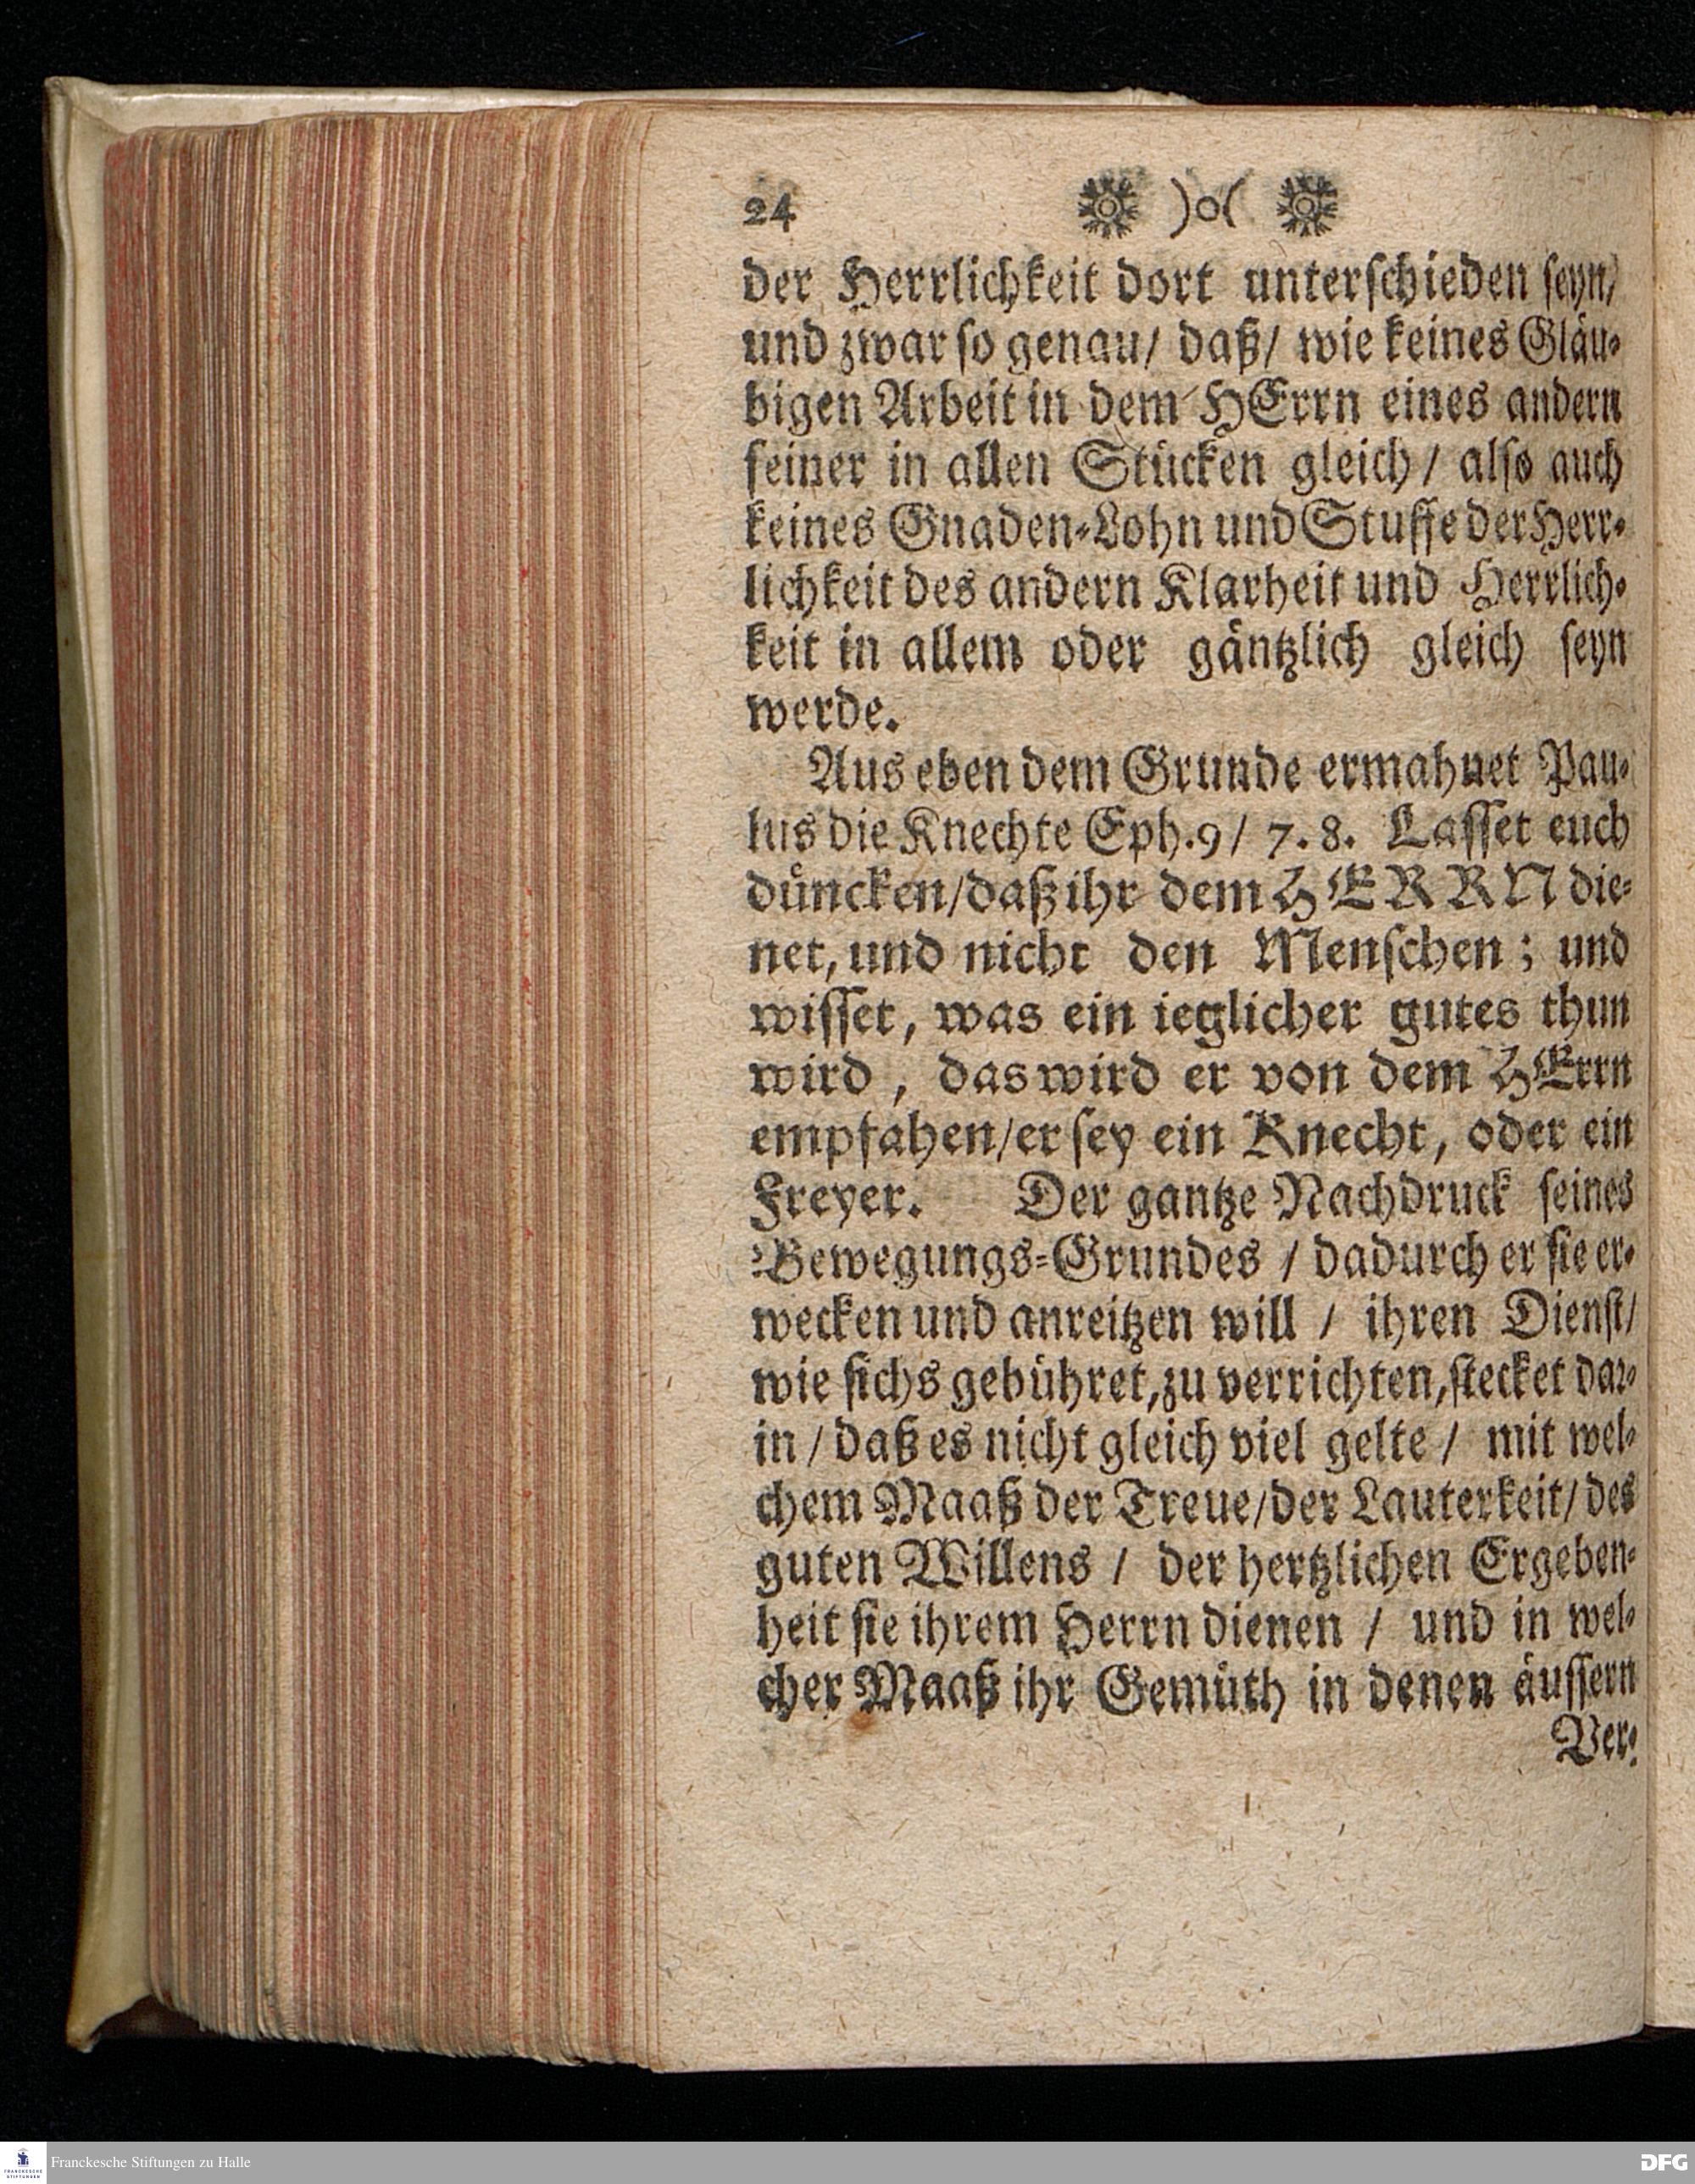 24 )o(
der Herrlichkeit dort unterschieden seyn/
und zwar so genau/ daß/ wie keines Gläu-
bigen Arbeit in dem HErrn eines andern
seiner in allen Stücken gleich / also auch
keines Gnaden-Lohn und Stuffe der Herr-
lichkeit des andern Klarheit und Herrlich-
keit in allem oder gäntzlich gleich seyn
werde.
Aus eben dem Grunde ermahnet Pau-
lus die Knechte Eph. 9/ 7. 8. Lasset euch
düncken/daß ihr dem HERRN die-
net, und nicht den Menschen; und
wisset, was ein ieglicher gutes thun
wird, das wird er von dem HErrn
empfahen/er sey ein Knecht, oder ein
Freyer. Der gantze Nachdruck seines
Bewegungs-Grundes / dadurch er sie er-
wecken und anreitzen will / ihren Dienst/
wie sichs gebühret, zu verrichten, stecket dar-
in / daß es nicht gleich viel gelte / mit wel-
chem Maaß der Treue/der Lauterkeit/ des
guten Willens / der hertzlichen Ergeben-
heit sie ihrem Herrn dienen / und in wel-
cher Maaß ihr Gemüth in denen äussern
Ver-
FRANCKESCHE STIFTUNGEN
Franckesche Stiftungen zu Halle
DFG